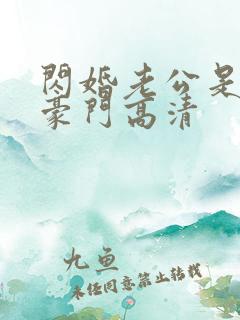 閃婚老公是
豪門高清
九鱼
未经同意禁止转载